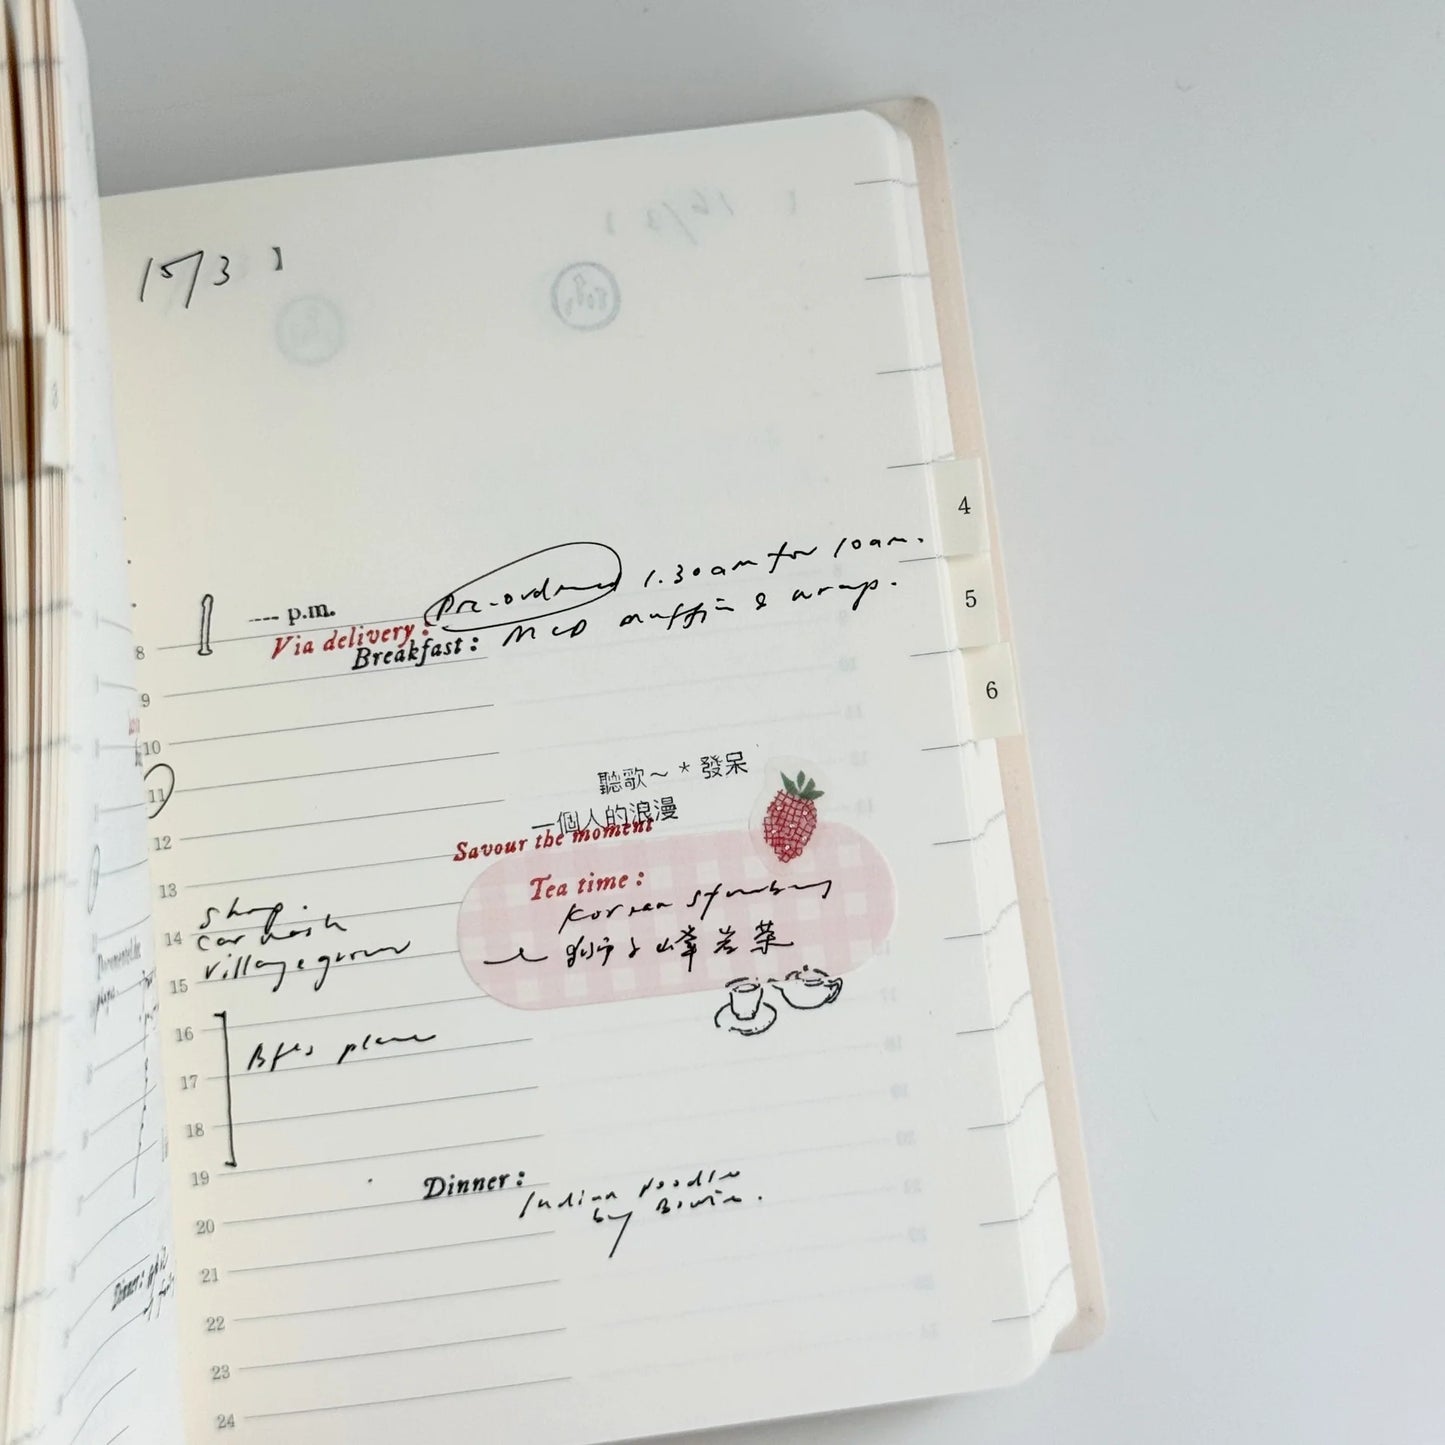 15/3 】
Pre-ordered 1.30am for 10am.
---- p.m.
Via delivery :
Breakfast : McD muffin & wrap.
8
9
10
11
12
13
14
15
16
17
18
19
20
21
22
23
24
聽歌～ * 發呆
一個人的浪漫
Savour the moment
Tea time :
Korean strawberry
獅子峰岩茶
Shop.
Car wash
Village
Bf's place
Dinner :
Indian noodle
by
4
5
6